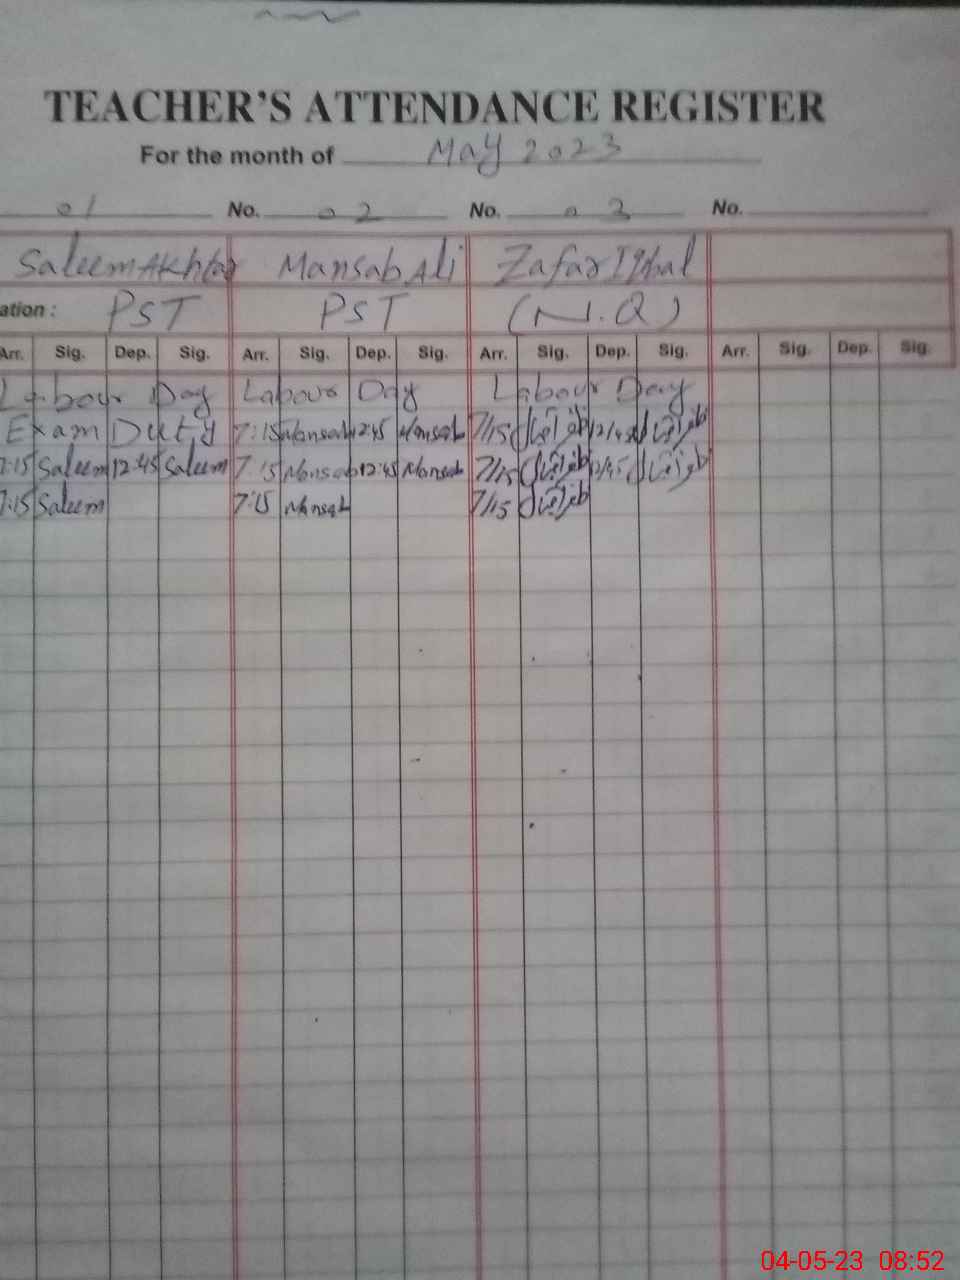 TEACHER'S ATTENDANCE REGISTER
For the month of May 2023
01 No. 02 No. 03 No.
Saleem Akhtar Mansab Ali Zafar Iqbal
ation : PST PST (N.Q)
Arr. Sig. Dep. Sig. Arr. Sig. Dep. Sig. Arr. Sig. Dep. Sig. Arr. Sig. Dep. Sig.
Labour Day Labour Day Labour Day
Exam Duty 7:15 Mansab 12:45 Mansab 7/15 ظفراقبال 12/45 ظفراقبال
7:15 Saleem 12:45 Saleem 7:15 Mansab 12:45 Mansab 7/15 ظفراقبال 12/45 ظفراقبال
7:15 Saleem 7:15 Mansab 7/15 ظفراقبال
04-05-23 08:52